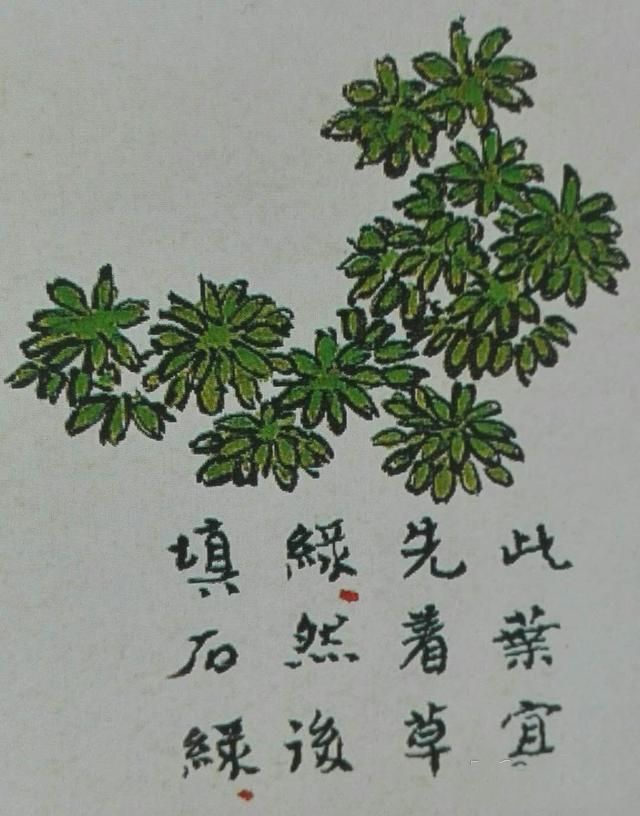 此葉宜
先着草
綠然後
填石綠